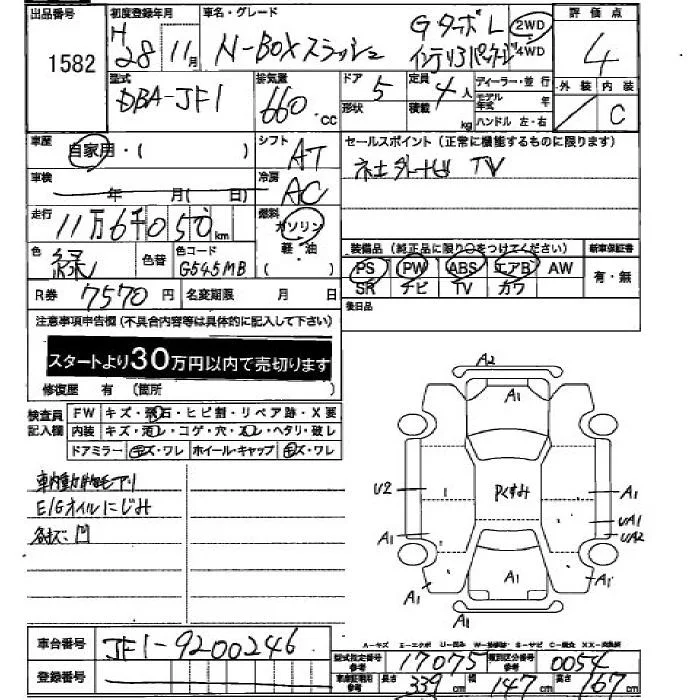 出品番号 初度登録年月 車名・グレード 評価点
1582 H28 11月 N-BOXスラッシュ GターボL 2WD 4
インテリアパッケージ 4WD
型式 排気量 ドア 定員 ディーラー・並行 外装 内装
DBA-JF1 660 cc 5 4人 モデル年式 年 C
形状 積載 kg ハンドル 左・右
車歴 自家用・( ) シフト AT セールスポイント(正常に機能するものに限ります)
車検 年 月( 日) 冷房 AC 社外ナビ TV
走行 11万6千050km 燃料 ガソリン
軽・油 装備品(純正品に限り○をつけてください) 新車保証書
色 緑 色替 色コード G545MB ( ) PS PW ABS エアB AW 有・無
SR ナビ TV カワ
R券 7570円 名変期限 月 日 後日品
注意事項申告欄(不具合内容等は具体的に記入して下さい)
スタートより30万円以内で売切ります
修復歴 有 (箇所
検査員記入欄 FW キズ・飛石・ヒビ割・リペア跡・X要
内装 キズ・汚レ・コゲ・穴・スレ・ヘタリ・破レ
ドアミラー キズ・ワレ ホイール・キャップ キズ・ワレ
車内動物毛アリ
E/Gオイルにじみ
各キズ・凹
A2
A1
U2 Pくすみ A1
UA1
A1 UA2
A1 A1 A1
A1
車台番号 JF1-9200246
登録番号
A-キズ E-エクボ U-凹み W-補修跡 S-サビ C-腐食 XX-交換済
型式指定番号 参考 17075 類別区分番号 参考 0054
車庫証明用 参考 長さ 339cm 幅 147cm 高さ 167cm